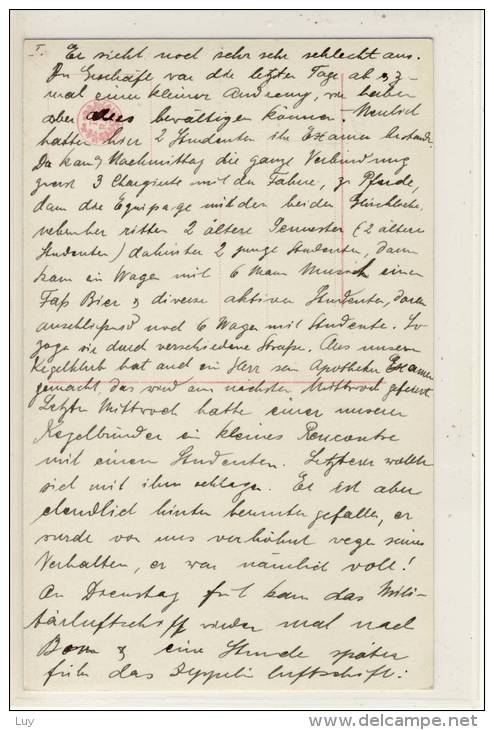 I. Es sieht noch sehr sehr schlecht aus.
Im Geschäft war die letzten Tage ab & z-
mal einen kleinen Andrang, wir haben
aber alles bewältigen können. Neulich
hatten hier 2 Studenten ihr Examen bestanden
Da kam Nachmittag die ganze Verbindung
zuerst 3 Chargierte mit der Fahne, z. Pferde,
dann die Equipage mit den beiden Glücklichen
nebenher ritten 2 ältere Semester (2 ältere
Studenten) dahinter 2 junge Studenten, dann
kam ein Wagen mit 6 Mann Musick einen
Faß Bier & diverse aktiven Studenten, daran
anschließend noch 6 Wagen mit Studente. So
zoge sie durch verschiedene Straße. Aus unserm
Kegelklub hat auch ein Herr sein Apotheker Examen
gemacht das wird am nächsten Mittwoch gefeiert.
Letzten Mittwoch hatte einer unserer
Kegelbrüder ein kleines Rencontre
mit einen Studenten. Letzterer wollte
sich mit ihm schlagen. Er ist aber
elendlich hinten herunter gefallen, er
wurde von uns verhöhnt wege seines
Verhalten, er war nämlich voll!
An Dienstag früh kam das Mili-
tärluftschiff wieder mal nach
Bonn & eine Stunde später
fuhr das Zeppelin Luftschiff:
Luy
www.delcampe.net